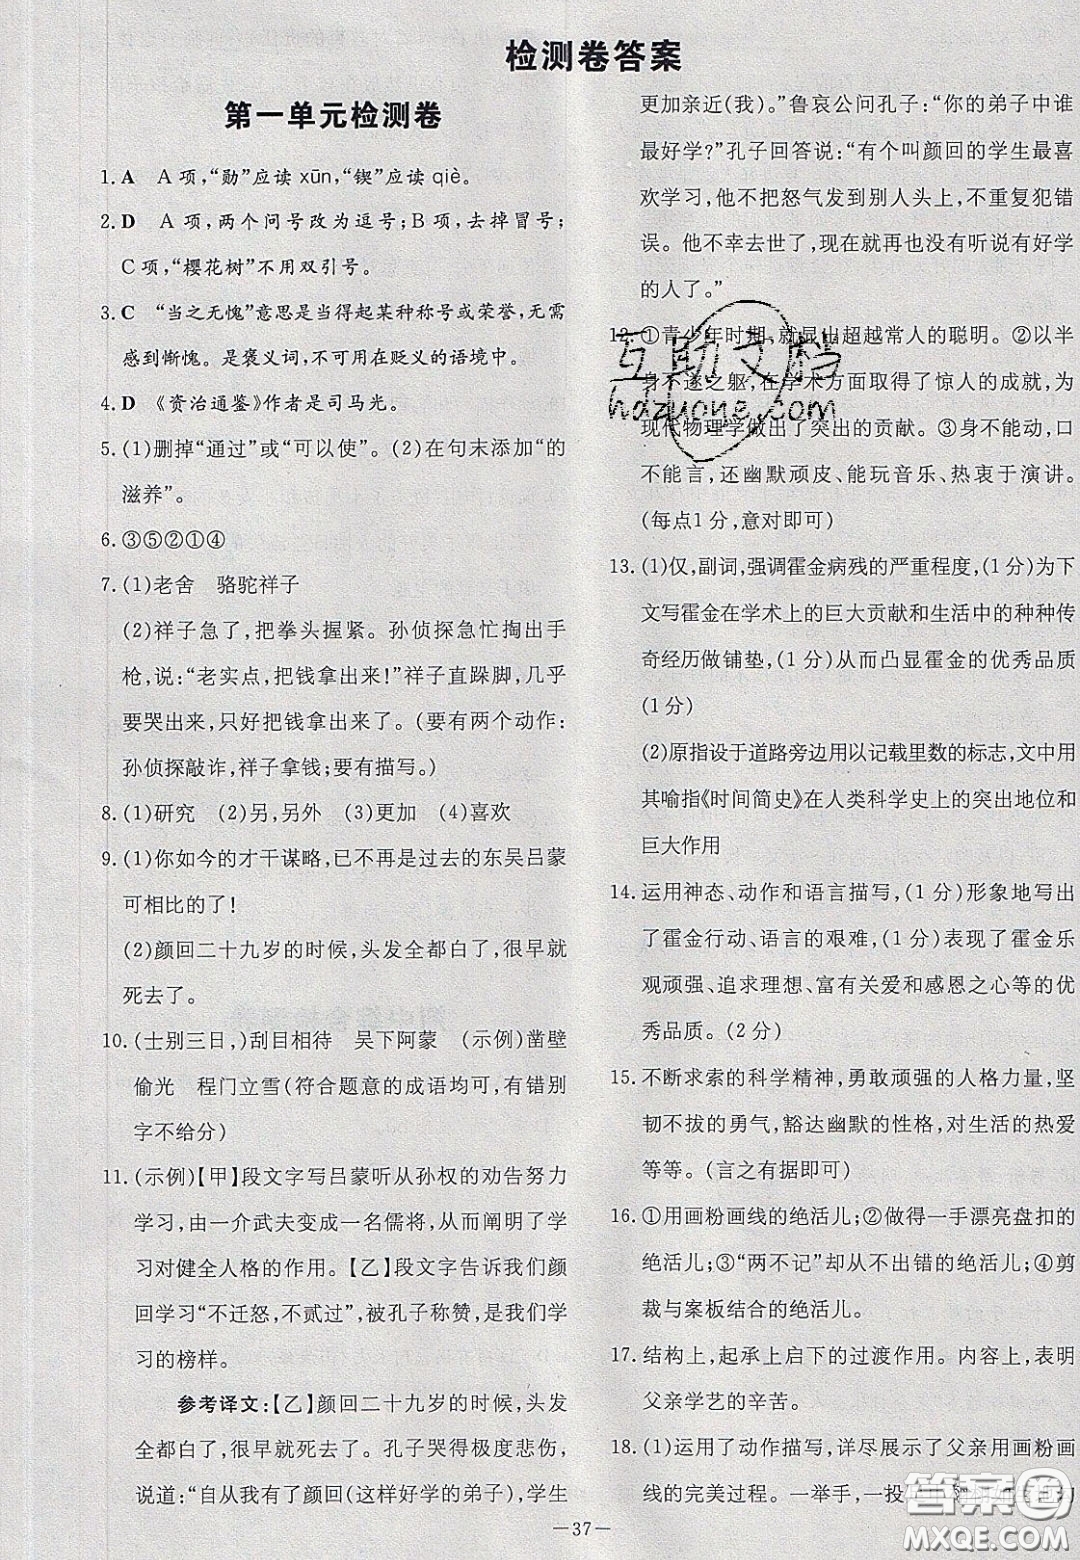 检测卷答案
第一单元检测卷
1. A　A 项,“勋”应读 xūn,“锲”应读 qiè。
2. D　A 项,两个问号改为逗号;B 项,去掉冒号;
C 项,“樱花树”不用双引号。
3. C　“当之无愧”意思是当得起某种称号或荣誉,无需
感到惭愧。是褒义词,不可用在贬义的语境中。
4. D　《资治通鉴》作者是司马光。
5. (1)删掉“通过”或“可以使”。(2)在句末添加“的
滋养”。
6. ③⑤②①④
7. (1)老舍　骆驼祥子
(2)祥子急了,把拳头握紧。孙侦探急忙掏出手
枪,说:“老实点,把钱拿出来!”祥子直跺脚,几乎
要哭出来,只好把钱拿出来了。(要有两个动作:
孙侦探敲诈,祥子拿钱;要有描写。)
8. (1)研究　(2)另,另外　(3)更加　(4)喜欢
9. (1)你如今的才干谋略,已不再是过去的东吴吕蒙
可相比的了!
(2)颜回二十九岁的时候,头发全都白了,很早就
死去了。
10. (士别三日,)刮目相待　吴下阿蒙　(示例)凿壁
偷光　程门立雪(符合题意的成语均可,有错别
字不给分)
11. (示例)【甲】段文字写吕蒙听从孙权的劝告努力
学习,由一介武夫变成一名儒将,从而阐明了学
习对健全人格的作用。【乙】段文字告诉我们颜
回学习“不迁怒,不贰过”,被孔子称赞,是我们学
习的榜样。
参考译文:【乙】颜回二十九岁的时候,头发
全都白了,很早就死去了。孔子哭得极度悲伤,
说道:“自从我有了颜回(这样好学的弟子),学生
更加亲近(我)。”鲁哀公问孔子:“你的弟子中谁
最好学?”孔子回答说:“有个叫颜回的学生最喜
欢学习,他不把怒气发到别人头上,不重复犯错
误。他不幸去世了,现在再也没有听说有好学
的人了。”
12. ①青少年时期,就显出超越常人的聪明。②以半
身不遂之躯,在学术方面取得了惊人的成就,为
现代物理学做出了突出的贡献。③身不能动,口
不能言,还幽默顽皮、能玩音乐、热衷于演讲。
(每点1分,意对即可)
13. (1)仅,副词,强调霍金病残的严重程度,(1分)为下
文写霍金在学术上的巨大贡献和生活中的种种传
奇经历做铺垫,(1分)从而凸显霍金的优秀品质
(1分)
(2)原指设于道路旁边用以记载里数的标志,文中用
其喻指《时间简史》在人类科学史上的突出地位和
巨大作用
14. 运用神态、动作和语言描写,(1分)形象地写出
了霍金行动、语言的艰难,(1分)表现了霍金乐
观顽强、追求理想、富有关爱和感恩之心等的优
秀品质。(2分)
15. 不断求索的科学精神,勇敢顽强的人格力量,坚
韧不拔的勇气,豁达幽默的性格,对生活的热爱
等等。(言之有据即可)
16. ①用画粉画线的绝活儿;②做得一手漂亮盘扣的
绝活儿;③“两不记”却从不出错的绝活儿;④剪
裁与案板结合的绝活儿。
17. 结构上,起承上启下的过渡作用。内容上,表明
父亲学艺的辛苦。
18. (1)运用了动作描写,详尽展示了父亲用画粉画
线的完美过程。一举手,一投
互助文档
hdzuone.com
答案圈
MXQE.COM
— 37 —